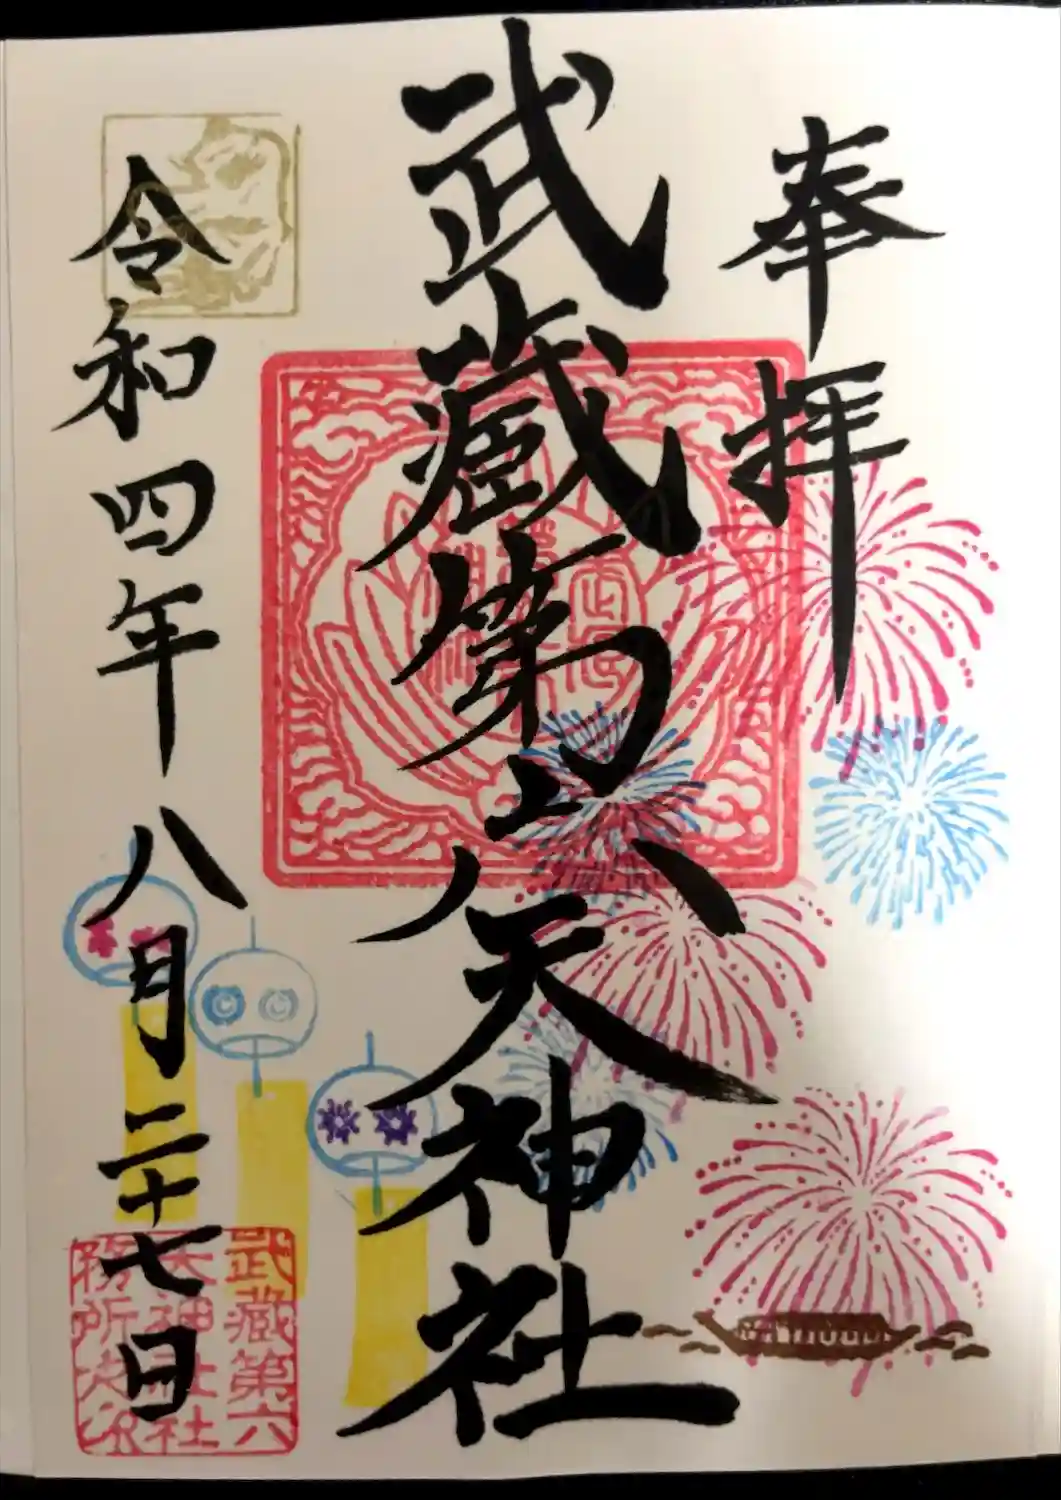 奉拝
武蔵第六天神社
令和四年八月二十七日
武蔵第六
天神社社
務所之印